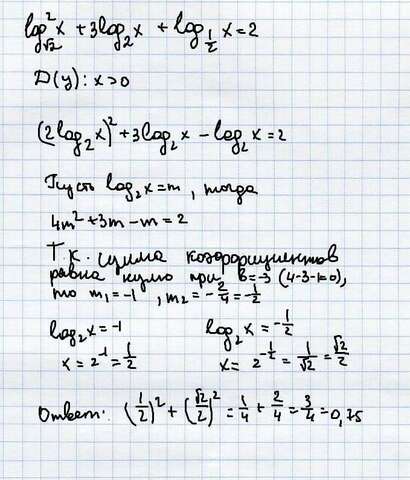 log²_√2 x + 3log₂x + log_1/2 x = 2
D(y): x>0
(2log₂x)² + 3log₂x - log₂x = 2
Пусть log₂x = m, тогда
4m² + 3m - m = 2
Т.к. сумма коэффициентов
равна нулю при b=-3 (4-3-1=0),
то m₁ = -1, m₂ = -2/4 = -1/2
log₂x = -1 log₂x = -1/2
x = 2⁻¹ = 1/2 x = 2^(-1/2) = 1/√2 = √2/2
Ответ: (1/2)² + (√2/2)² = 1/4 + 2/4 = 3/4 = 0,75